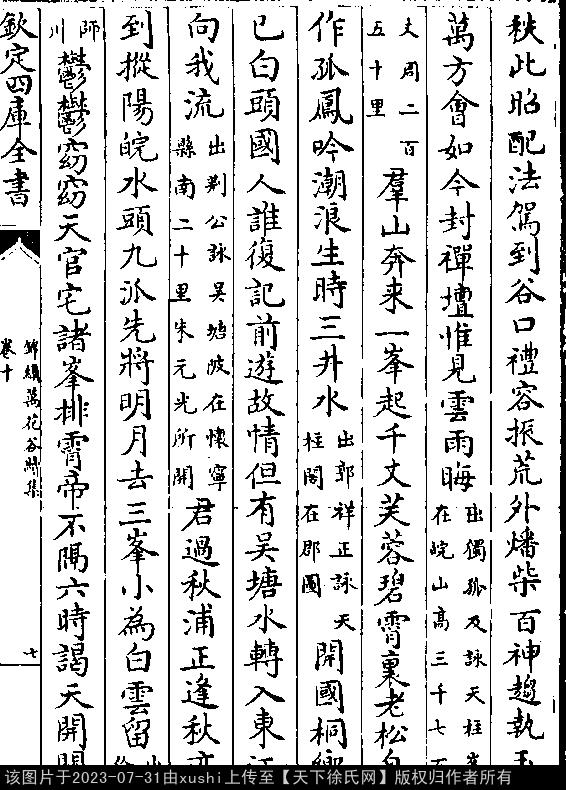 秩此昭配法駕到谷口禮容振荒外燔柴百神趨執玉
萬方會如今封禪壇惟見雲雨晦出獨孤及詠天柱
在皖山高三千七
丈周二百
五十里羣山奔来一峯起千丈芙蓉碧霄裏老松
作孤鳳吟潮浪生時三井水出郭祥正詠天
柱閣在郡圃開國桐鄉
已白頭國人誰復記前遊故情但有吳塘水轉入東江
向我流出荆公詠吳塘陂在懷寧
縣南二十里朱元光所開君過秋浦正逢秋
到摐陽皖水頭九派先將明月去三峯小為白雲留
師
川鬱鬱窈窈天官宅諸峯排霄帝不隔六時謁天開關
欽定四庫全書
錦繡萬花谷續集
卷十
七
该图片于2023-07-31由xushi上传至【天下徐氏网】版权归作者所有